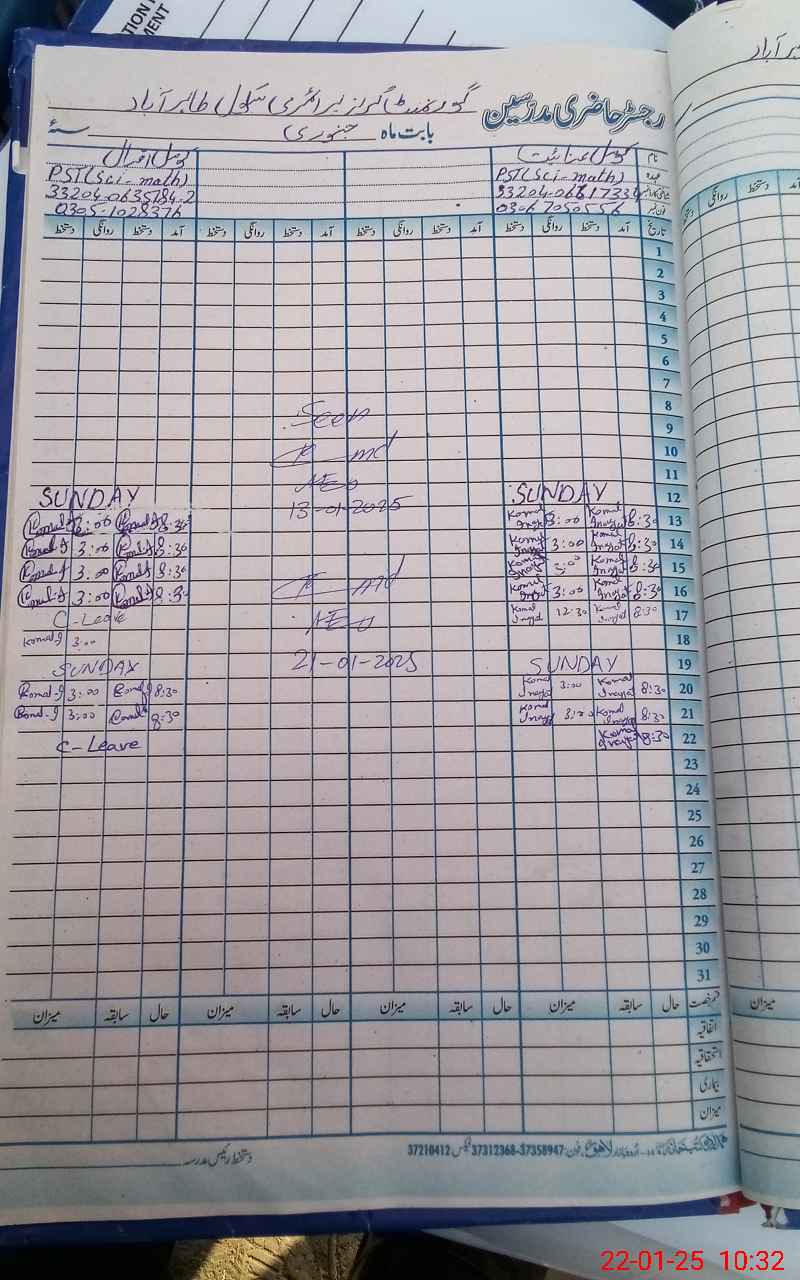 رجسٹر حاضری مدرسین گورنمنٹ گرلز پرائمری سکول طاہر آباد
بابت ماہ جنوری سنۂ
نام کومل عنائیت کومل اقبال
عہدہ PST(Sci-math) PST(Sci-math)
شناختی کارڈ نمبر 33204-0635784-2
فون نمبر 0306 7050556 0305-1028376
تاریخ آمد دستخط روانگی دستخط آمد دستخط روانگی دستخط آمد دستخط روانگی دستخط آمد دستخط روانگی دستخط
1
2
3
4
5
6
7
8
Seen
9
10
11
12 SUNDAY SUNDAY
13-01-2025
13 8:30 Komal Inayat 3:00 Komal Inayat 8:30 Komal I 3:00 Komal I
14 8:30 Komal Inayat 3:00 Komal Inayat 8:30 Komal I 3:00 Komal I
15 8:30 Komal Inayat 3:00 Komal Inayat 8:30 Komal I 3:00 Komal I
16 8:30 Komal Inayat 3:00 Komal Inayat 8:30 Komal I 3:00 Komal I
17 8:30 Komal Inayat 12:30 Komal Inayat C-Leave
18 3:00 Komal I
19 SUNDAY SUNDAY
21-01-2025
20 8:30 Komal Inayat 3:00 Komal Inayat 8:30 Komal I 3:00 Komal I
21 8:30 Komal Inayat 3:00 Komal Inayat 8:30 Komal I 3:00 Komal I
22 8:30 Komal Inayat C-Leave
23
24
25
26
27
28
29
30
31
قسم رخصت حال سابقہ میزان حال سابقہ میزان حال سابقہ میزان حال سابقہ میزان
اتفاقیہ
استحقاقیہ
بیماری
میزان
اردو بازار لاہور، فون: 37358947-37312368 فیکس 37210412
دستخط رئیس مدرسہ
22-01-25 10:32